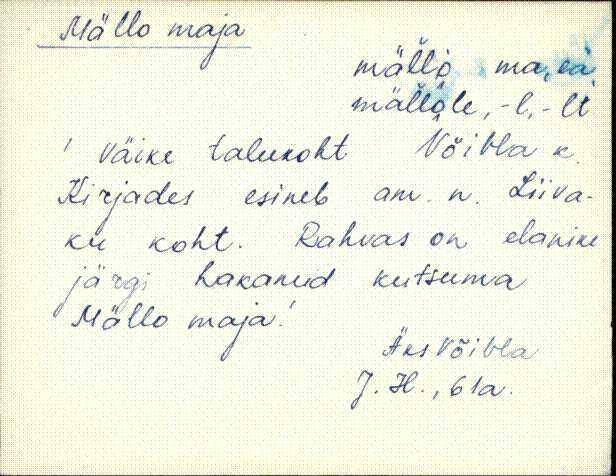 Mällo maja
mällò ma,ea
mällòle, -l, -lt
! Väike talukoht Võibla k.
Kirjades esineb am. n. Liiva-
ku koht. Rahvas on elanike
järgi hakanud kutsuma
Mällo maja!
Äks Võibla
J. H., 61a.